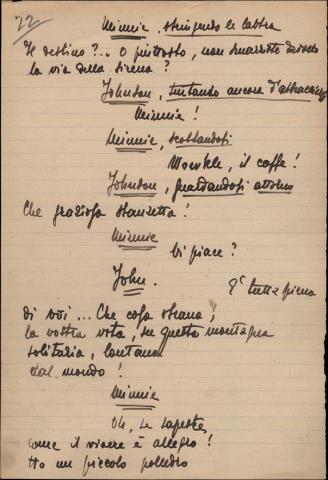 22
Minnie, stringendo le labbra
Il destino?.. O piuttosto, non smarriste davvero
la via della sirena?
Johnson, tentando ancora d'abbracciarla
Minnie!
Minnie, scostandosi
Wowkle, il caffè!
Johnson, guardandosi attorno
Che graziosa stanzetta!
Minnie
Vi piace?
John.
È tutta piena
di voi... Che cosa strana,
la vostra vita, su questa montagna
solitaria, lontana
dal mondo!
Minnie
Oh, se sapeste,
come il vivere è allegro!
Ho un piccolo polledro